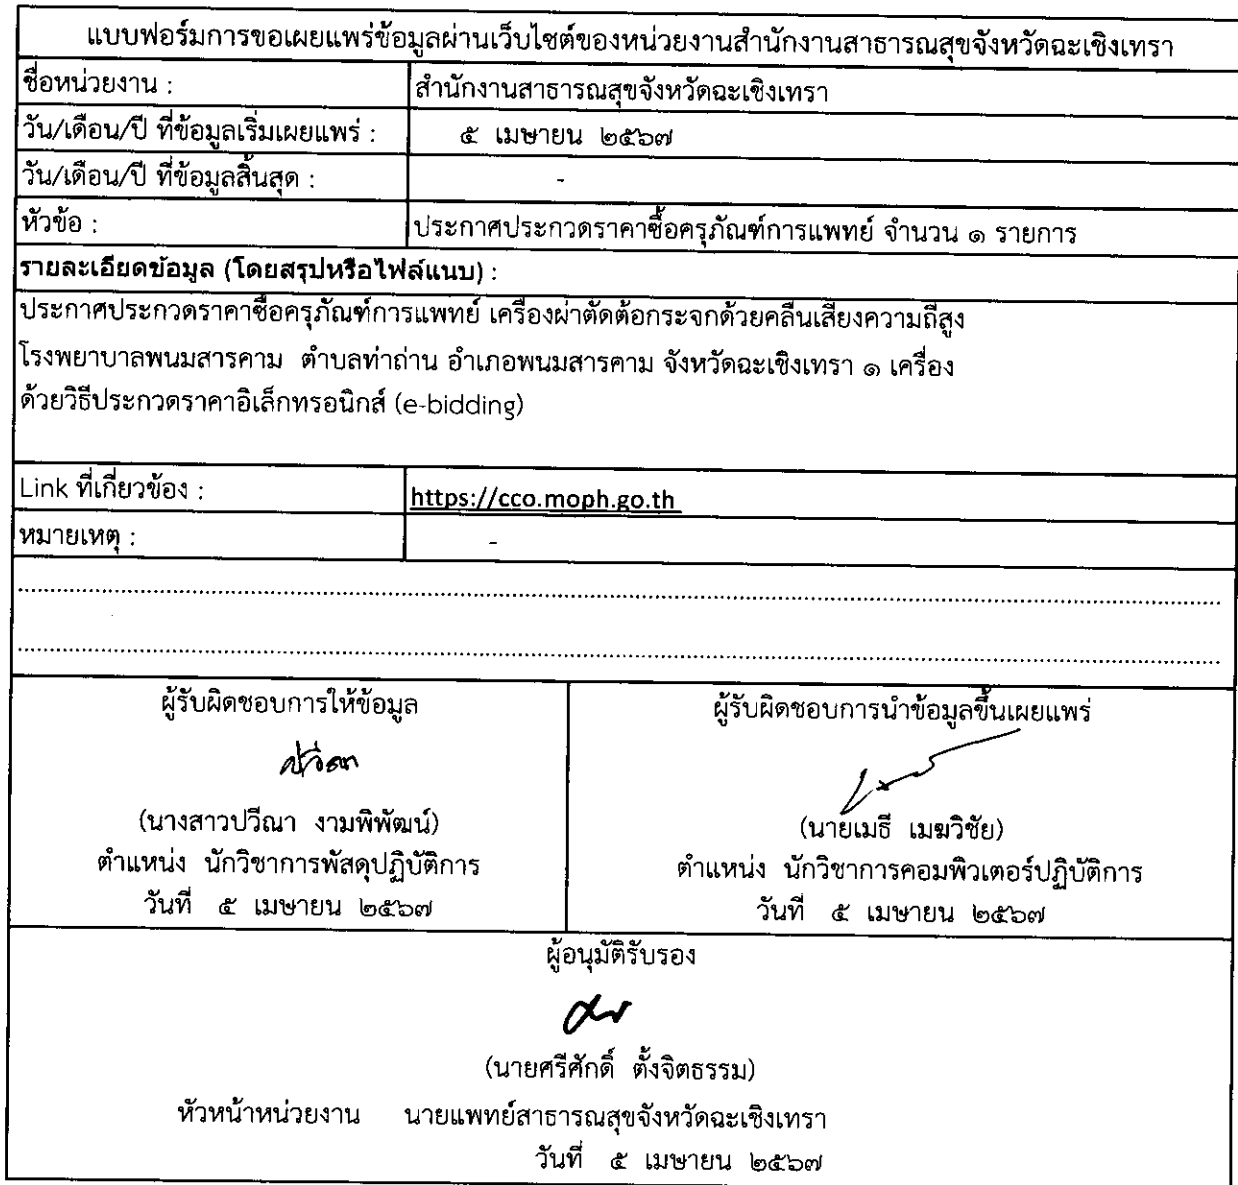 แบบฟอร์มการขอเผยแพร่ข้อมูลผ่านเว็บไซต์ของหน่วยงานสำนักงานสาธารณสุขจังหวัดฉะเชิงเทรา
ชื่อหน่วยงาน : สำนักงานสาธารณสุขจังหวัดฉะเชิงเทรา
วัน/เดือน/ปี ที่ข้อมูลเริ่มเผยแพร่ : ๕ เมษายน ๒๕๖๗
วัน/เดือน/ปี ที่ข้อมูลสิ้นสุด : -
หัวข้อ : ประกาศประกวดราคาซื้อครุภัณฑ์การแพทย์ จำนวน ๑ รายการ
รายละเอียดข้อมูล (โดยสรุปหรือไฟล์แนบ) :
ประกาศประกวดราคาซื้อครุภัณฑ์การแพทย์ เครื่องผ่าตัดต้อกระจกด้วยคลื่นเสียงความถี่สูง
โรงพยาบาลพนมสารคาม ตำบลท่าถ่าน อำเภอพนมสารคาม จังหวัดฉะเชิงเทรา ๑ เครื่อง
ด้วยวิธีประกวดราคาอิเล็กทรอนิกส์ (e-bidding)
Link ที่เกี่ยวข้อง : https://cco.moph.go.th
หมายเหตุ : -
ผู้รับผิดชอบการให้ข้อมูล ผู้รับผิดชอบการนำข้อมูลขึ้นเผยแพร่
ปวีณา
(นางสาวปวีณา งามพิพัฒน์) (นายเมธี เมฆวิชัย)
ตำแหน่ง นักวิชาการพัสดุปฏิบัติการ ตำแหน่ง นักวิชาการคอมพิวเตอร์ปฏิบัติการ
วันที่ ๕ เมษายน ๒๕๖๗ วันที่ ๕ เมษายน ๒๕๖๗
ผู้อนุมัติรับรอง
(นายศรีศักดิ์ ตั้งจิตธรรม)
หัวหน้าหน่วยงาน นายแพทย์สาธารณสุขจังหวัดฉะเชิงเทรา
วันที่ ๕ เมษายน ๒๕๖๗